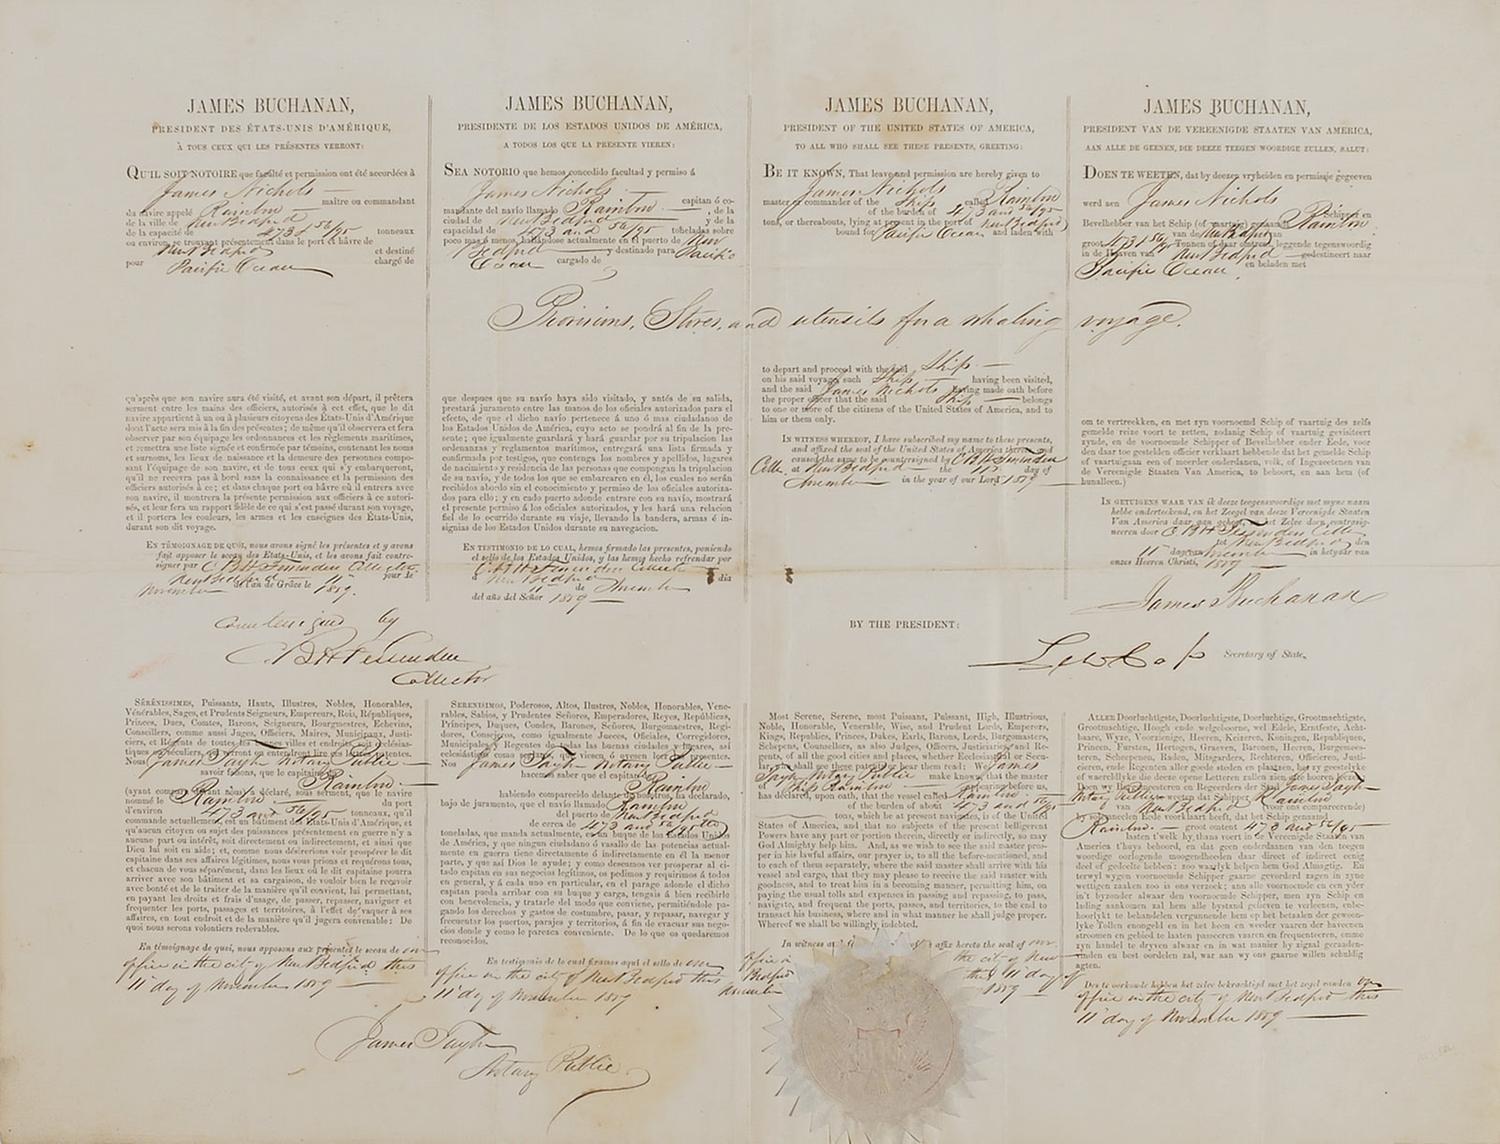 JAMES BUCHANAN,
PRESIDENT DES ÉTATS-UNIS D'AMÉRIQUE,
À TOUS CEUX QUI LES PRÉSENTES VERRONT:
QU'IL SOIT NOTOIRE que faculté et permission ont été accordées à
James Nichols
maître ou commandant
du navire appelé Rainbow
de la ville de New Bedford
de la capacité de 473 & 56/95 tonneaux
ou environ, se trouvant présentement dans le port et hâvre de
New Bedford et destiné
pour Pacific Ocean chargé de
JAMES BUCHANAN,
PRESIDENTE DE LOS ESTADOS UNIDOS DE AMÉRICA,
A TODOS LOS QUE LA PRESENTE VIEREN:
SEA NOTORIO que hemos concedido facultad y permiso á
James Nichols capitan ó co-
mandante del navío llamado Rainbow, de la
ciudad de New Bedford y de la
capacidad de 473 and 56/95 toneladas sobre
poco mas ó menos, hallándose actualmente en el puerto de New
Bedford y destinado para Pacific
Ocean cargado de
JAMES BUCHANAN,
PRESIDENT OF THE UNITED STATES OF AMERICA,
TO ALL WHO SHALL SEE THESE PRESENTS, GREETING:
BE IT KNOWN, That leave and permission are hereby given to
James Nichols
master or commander of the Ship called Rainbow
of the burden of 473 and 56/95
tons, or thereabouts, lying at present in the port of New Bedford
bound for Pacific Ocean and laden with
JAMES BUCHANAN,
PRESIDENT VAN DE VEREENIGDE STAATEN VAN AMERICA,
AAN ALLE DE GEENEN, DIE DEEZE TEEGEN WOORDIGE ZULLEN, SALUT:
DOEN TE WEETEN, dat by deezen vryheiden en permissje gegeeven
werd aen James Nichols Schipper en
Bevelhebber van het Schip (of vaartuig) genaamt Rainbow
van de New Bedford
groot 473 & 56/95 Tonnen of daar omtrent, leggende tegenswoordig
in de Haaven van New Bedford gedestineert naar
Pacific Ocean en beladen met
Provisions, Stores, and utensils for a whaling voyage.
qu'après que son navire aura été visité, et avant son départ, il prêtera
serment entre les mains des officiers, autorisés à cet effet, que le dit
navire appartient à un ou à plusieurs citoyens des États-Unis d'Amérique
dont l'acte sera mis à la fin des présentes; de même qu'il observera et fera
observer par son équipage les ordonnances et les règlements maritimes,
et remettra une liste signée et confirmée par témoins, contenant les noms
et surnoms, les lieux de naissance et la demeure des personnes compo-
sant l'équipage de son navire, et de tous ceux qui s'y embarqueront,
qu'il ne recevra pas à bord sans la connaissance et la permission des
officiers autorisés à ce; et dans chaque port ou hâvre où il entrera avec
son navire, il montrera la présente permission aux officiers à ce autori-
sés, et leur fera un rapport fidèle de ce qui s'est passé durant son voyage,
et il portera les couleurs, les armes et les enseignes des États-Unis,
durant son dit voyage.
EN TÉMOIGNAGE DE QUOI, nous avons signé les présentes et y avons
fait apposer le sceau des États-Unis, et les avons fait contre-
signer par C B H Fessenden Collector
New Bedford le 11" jour de
November de l'an de Grâce le 1859.
que despues que su navío haya sido visitado, y antés de su salida,
prestará juramento entre las manos de los oficiales autorizados para el
efecto, de que el dicho navío pertenece á uno ó mas ciudadanos de
los Estados Unidos de América, cuyo acto se pondrá al fin de la pre-
sente; que igualmente guardará y hará guardar por su tripulacion las
ordenanzas y reglamentos marítimos, entregará una lista firmada y
confirmada por testigos, que contenga los nombres y apellidos, lugares
de nacimiento y residencia de las personas que compongan la tripulacion
de su navío, y de todos los que se embarcaren en él, los cuales no serán
recibidos abordo sin el conocimiento y permiso de los oficiales autoriza-
dos para ello; y en cada puerto adonde entrare con su navío, mostrará
el presente permiso á los oficiales autorizados, y les hará una relacion
fiel de lo ocurrido durante su viaje, llevando la bandera, armas é in-
signias de los Estados Unidos durante su navegacion.
EN TESTIMONIO DE LO CUAL, hemos firmado las presentes, poniendo
el sello de los Estados Unidos, y las hemos hecho refrendar por
C B H Fessenden Collector
á New Bedford 11 dia
de November
del año del Señor 1859
to depart and proceed with the said Ship
on his said voyage, such Ship having been visited,
and the said James Nichols having made oath before
the proper officer that the said Ship belongs
to one or more of the citizens of the United States of America, and to
him or them only.
IN WITNESS WHEREOF, I have subscribed my name to these presents,
and affixed the seal of the United States of America thereto, and
caused the same to be countersigned by C B H Fessenden
at New Bedford the 11" day of
November in the year of our Lord 1859
om te vertrecken, en met zyn voornoemd Schip of vaartuig des zelfs
gemelde reize voort te zetten, zodanig Schip of vaartuig gevisiteert
zynde, en de voornoemde Schipper of Bevelhebber onder Eede, voor
den daar toe gestelden officier verklaart hebbende dat het gemelde Schip
of vaartuigaan een of meerder onderdanen, volk, of Ingezeetenen van
de Vereenigde Staaten Van America, toebehoort, en aan hem (of
hunalleen.)
IN GETUIGENS WAAR VAN ik deeze teegenswoordige met myne naam
hebbe onderteekend, en het Zeegel van deeze Vereenigde Staaten
Van America daar aan gehegt, het Zelve doen contrasig-
neeren door C B H Fessenden
tot New Bedford den
11" dag van November in het yaar van
onzes Heeren Christi, 1859
James Buchanan
Countersigned by
C B H Fessenden
Collector
BY THE PRESIDENT:
Lew Cass Secretary of State.
SÉRÉNISSIMES, Puissants, Hauts, Illustres, Nobles, Honorables,
Vénérables, Sages, et Prudents Seigneurs, Empereurs, Rois, Républiques,
Princes, Ducs, Comtes, Barons, Seigneurs, Bourgmestres, Echevins,
Conseillers, comme aussi Juges, Officiers, Maires, Municipaux, Justi-
ciers, et Régents de toutes les bonnes villes et endroits, soit ecclésias-
tiques séculiers, qui verront ou entendront lire ces lettres patentes.
Nous James Taylor Notary Public
savoir faisons, que le capitaine Rainbow
(ayant comparu devant nous) a déclaré, sous serment, que le navire
nommé le Rainbow du port
d'environ 473 and 56/95 tonneaux, qu'il
commande actuellement, est un bâtiment des États-Unis d'Amérique, et
qu'aucun citoyen ou sujet des puissances présentement en guerre n'y a
aucune part ou intérêt, soit directement ou indirectement, et ainsi que
Dieu lui soit en aide; et, comme nous désirerions voir prospérer le dit
capitaine dans ses affaires légitimes, nous vous prions et requérons tous,
et chacun de vous séparément, dans les lieux où le dit capitaine pourra
arriver avec son bâtiment et sa cargaison, de vouloir bien le recevoir
avec bonté et de le traiter de la manière qu'il convient, lui permettant,
en payant les droits et frais d'usage, de passer, repasser, naviguer et
frequenter les ports, passages et territoires, à l'effet de vaquer à ses
affaires, en tout endroit et de la manière qu'il jugera convenable: De
quoi nous serons volontiers redevables.
En témoignage de quoi, nous apposons aux présentes le sceau de our
office in the city of New Bedford this
11" day of November 1859
SERENISIMOS, Poderosos, Altos, Ilustres, Nobles, Honorables, Vene-
rables, Sabios, y Prudentes Señores, Emperadores, Reyes, Repúblicas,
Príncipes, Duques, Condes, Barones, Señores, Burgomaestres, Regi-
dores, Consejeros, como igualmente Jueces, Oficiales, Corregidores,
Municipales y Regentes de todas las buenas ciudades y lugares, así
eclesiásticos como seglares, que vieren ó oyeren leer los presentes.
Nos James Taylor Notary Public
hacemos saber que el capitan Rainbow
habiendo comparecido delante de nosotros, ha declarado,
bajo de juramento, que el navío llamado Rainbow
del puerto de New Bedford
de cerca de 473 and 56/95
toneladas, que manda actualmente, es un buque de los Estados Unidos
de América, y que ningun ciudadano ó vasallo de las potencias actual-
mente en guerra tiene directamente ó indirectamente en él la menor
parte, y que así Dios le ayude; y como deseamos ver prosperar al ci-
tado capitan en sus negocios legítimos, os pedimos y requirimos á todos
en general, y á cada uno en particular, en el parage adonde el dicho
capitan pueda arribar con su buque y carga, tengais á bien recibirlo
con benevolencia, y tratarle del modo que conviene, permitiéndole pa-
gando los derechos y gastos de costumbre, pasar, y repasar, navegar y
frecuentar los puertos, parajes y territorios, á fin de evacuar sus nego-
cios donde y como le parezca conveniente. De lo que os quedaremos
reconocidos.
En testigonis de lo cual firmamos aqui el sello de our
office in the city of New Bedford this
11" day of November 1859
James Taylor
Notary Public
Most Serene, Serene, most Puissant, Puissant, High, Illustrious,
Noble, Honorable, Venerable, Wise, and Prudent Lords, Emperors,
Kings, Republics, Princes, Dukes, Earls, Barons, Lords, Burgomasters,
Schepens, Counsellors, as also Judges, Officers, Justiciaries, and Re-
gents, of all the good cities and places, whether Ecclesiastical or Secu-
lar, who shall see these patents or hear them read: We James
Taylor Notary Public make known, that the master
of Ship Rainbow appearing before us,
has declared, upon oath, that the vessel called Rainbow
of the burden of about 473 and 56/95
tons, which he at present navigates, is of the United
States of America, and that no subjects of the present belligerent
Powers have any part or portion therein, directly or indirectly, so may
God Almighty help him. And, as we wish to see the said master pros-
per in his lawful affairs, our prayer is, to all the before-mentioned, and
to each of them separately, where the said master shall arrive with his
vessel and cargo, that they may please to receive the said master with
goodness, and to treat him in a becoming manner, permitting him, on
paying the usual tolls and expences in passing and repassing, to pass,
navigate, and frequent the ports, passes, and territories, to the end to
transact his business, where and in what manner he shall judge proper.
Whereof we shall be willingly indebted.
In witness affix hereto the seal of our
office in the city of New
Bedford this 11 day of
November 1859
ALLER Doorluchtigste, Doorluchtigste, Doorluchtige, Grootmachtigste,
Grootmachtige, Hoogh ende welgeboorne, wel Edele, Erntfeste, Acht-
baare, Wyze, Voorzienige, Heeren, Keizeren, Koningen, Republiquen,
Princen, Fursten, Hertogen, Graeven, Baronen, Heeren, Burgemees-
teren, Scheepenen, Raden, Mitsgarders, Rechteren, Officieren, Justi-
cieren, ende Regenten aller goede steden en plaatzen, het zy geestelyke
of waereldlyke die deeze opene Letteren zullen zien ofte hooren leezen.
Doen wy Burgemeesteren en Regeerders der Stad James Taylor
Notary Public weeten dat Schipper Rainbow
van New Bedford (voor ons compareerende)
by solemneelen Eede voorklaart heeft, dat het Schip genaamd
Rainbow groot omtent 473 and 56/95
lasten t'welk hy, thans voert in de Vereenigde Staaten van
America t'huys behoord, en dat geen onderdaanen van den teegen
woordige oorlogende moogendheeden daar direct of indirect eenig
deel of gedeelte hebben: zoo waarlyk helpen hem God Almagtig. En
terwyl wygen voornoemde Schipper gaarne gevorderd zagen in zyne
wettigen zaaken zoo is ons verzoek; ann alle voornoemde en een yder
in't byzonder alwaar den voornoemde Schipper, men zyn Schip en
lading aankomen zal hem alle bystand gelieven te verleenen, enbe-
hoorlykt te behandelen vergunnende hem op het betaalen der gewoon-
lyke Tollen enongeld en in het heen en weeder vaaren der haavenen
stroomen en gebied te laaten passeeren vaaren en frequenteeren, omme
zyn handel te dryven alwaar en in wat manier hy zigzal geraaden-
vinden en best oordelen zal, war aan wy ons gaarne willen schuldig
agten.
Den te oorkonde hebben het zelve bekrachtigd met het zegel vanden
office in the city of New Bedford this
11" day of November 1859